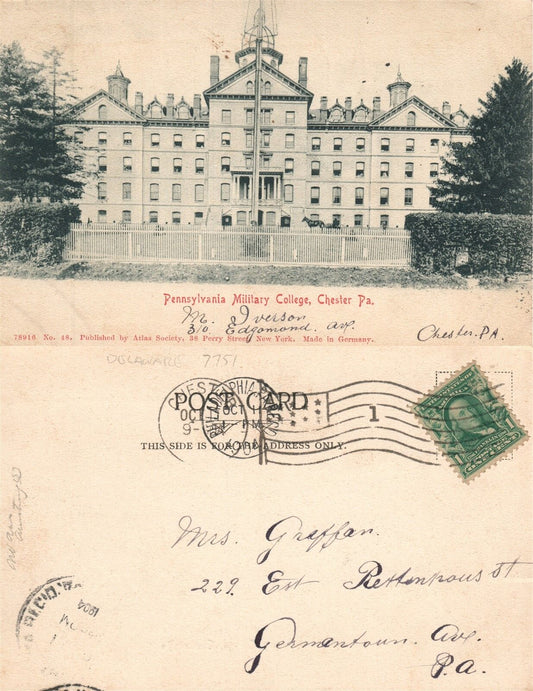 Pennsylvania Military College, Chester Pa.
M. Iverson
310 Edgomond. ave.
Chester. PA.
78916 No. 48. Published by Atlas Society, 38 Perry Street, New York. Made in Germany.
DELAWARE 7751
POST CARD
CHEST
PHILADELPHIA
OCT
OCT
9-
PM
1
THIS SIDE IS FOR THE ADDRESS ONLY.
Mrs. Graffan.
229. Est Rettenhous st
Germantown. Ave.
P.a.
1904
PM